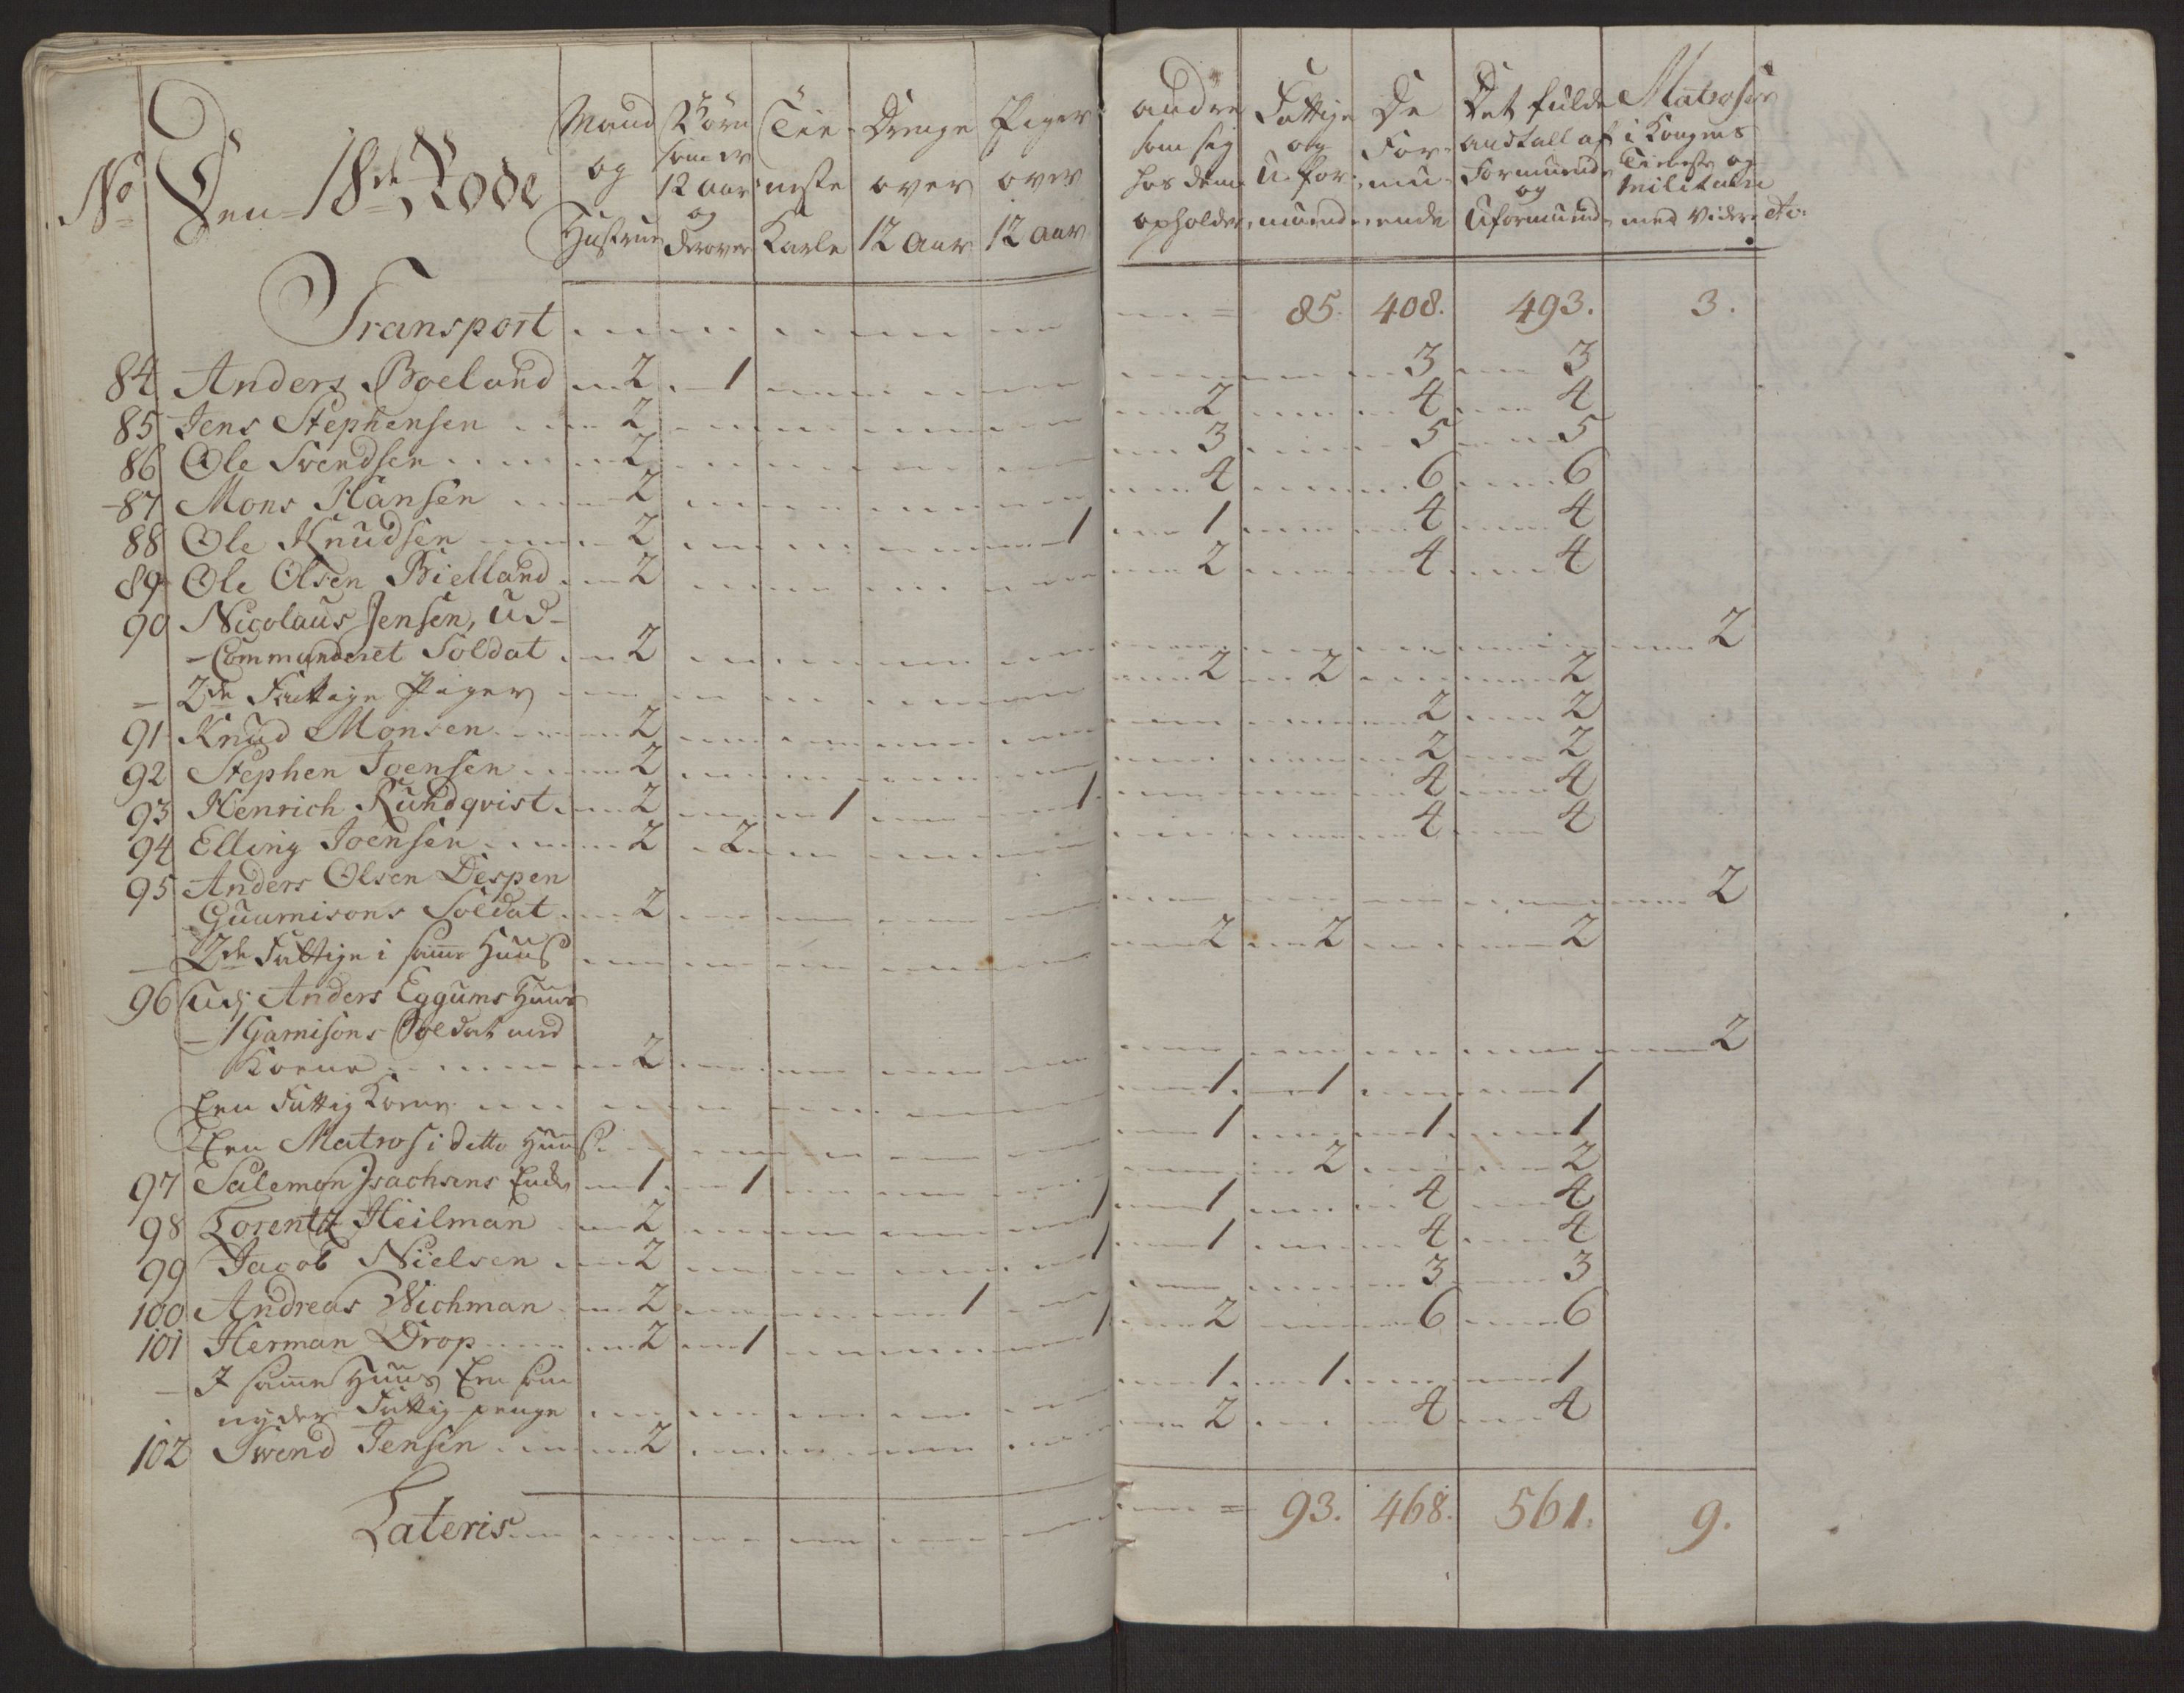 No Den 18de Rode
Mand og Hustrue
Börn som er 12 Aar og derover
Tieneste Karle
Drenge over 12 Aar
Piger over 12 Aar
andre som sig hos dem opholder
Fattige og U-formuende
De Formuende
Det fulde Antall af Formuende og Uformuende
Matroser i Kongens Tieneste og Militaire med videre etc:
Transport 85. 408. 493. 3.
84 Anders Boeland 2 1 3 3
85 Jens Stephensen 2 2 4 4
86 Ole Svendsen 2 3 5 5
87 Mons Hansen 2 4 6 6
88 Ole Knudsen 2 1 1 4 4
89 Ole Olsen Bielland 2 2 4 4
90 Nicolaus Jensen, Ud-
Commanderet Soldat 2 2
- 2de Fattige Piger 2 2 2
91 Knud Monsen 2 2 2
92 Stephen Joensen 2 2 2
93 Henrich Rundqvist 2 1 1 4 4
94 Elling Joensen 2 2 4 4
95 Anders Olsen Despen
Guarnisons Soldat 2 2
- 2de Fattige i samme Huus 2 2 2
96 udj Anders Eggums Huus
- 1 Garnisons Soldat med
Kone 2 2
Een Fattig Kone 1 1 1
Een Matros i ditto Huus 1 1 1
97 Salemon Jsachsens Enke 1 1 2 2
98 Lorentz Heilman 2 1 1 4 4
99 Jacob Nielsen 2 1 1 4 4
100 Andreas Wichman 2 1 3 3
101 Herman Drop 2 1 1 2 6 6
- I samme Huus Een som
nyder Fattig penge 1 1 1
102 Svend Jensen 2 2 4 4
Lateris 93. 468. 561. 9.